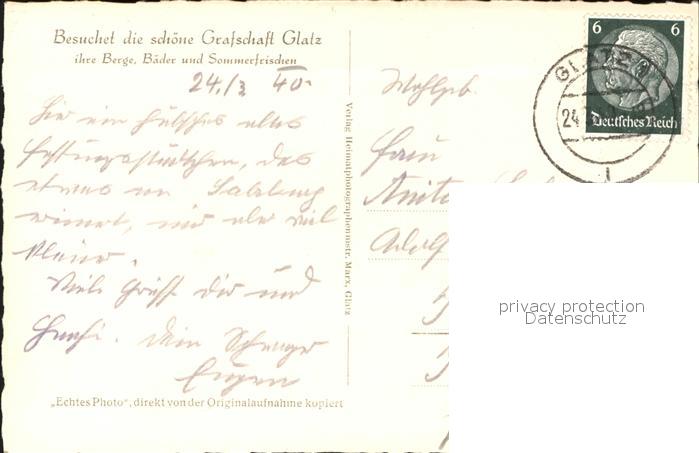 Besuchet die schöne Grafschaft Glatz
ihre Berge, Bäder und Sommerfrischen
24./3 40.
Hier ein hübsches altes
Festungsstädtchen, das
etwas an Salzburg
erinnert, nur aber viel
kleiner.
Viele Grüße Dir und
Dein Schwager
Eugen
„Echtes Photo“, direkt von der Originalaufnahme kopiert
Verlag Heimatphotographenmstr. Marx, Glatz
Wohlgeb.
Frau
Anita
Adolf
6 6
Deutsches Reich
GLATZ
24
privacy protection
Datenschutz